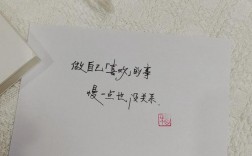 做自己「喜欢」的事
慢一点也没关系.